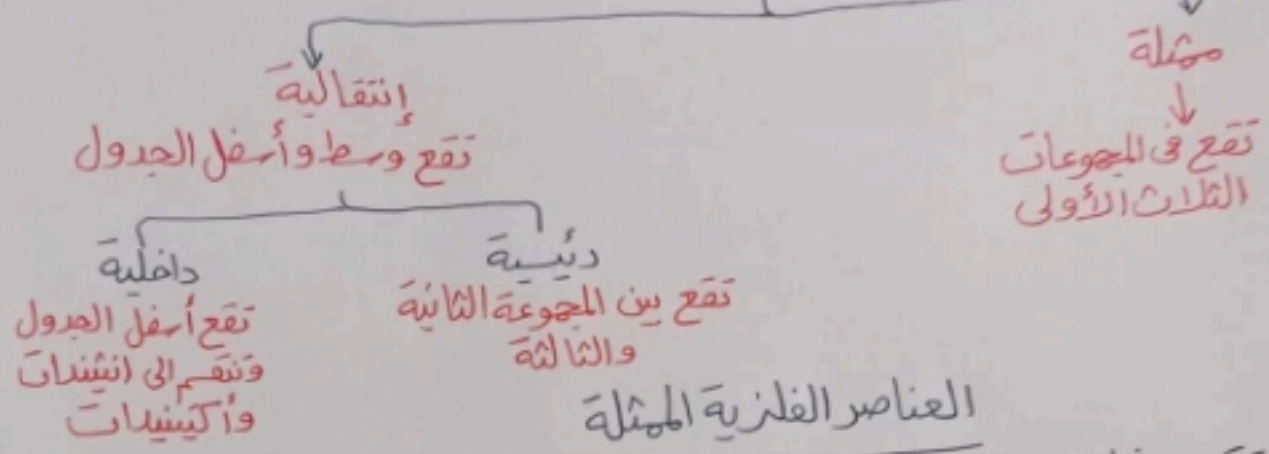 ممثلة
تقع في المجموعات
الثلاث الأولى
إنتقالية
تقع وسط وأسفل الجدول
رئيسية
تقع بين المجموعة الثانية
والثالثة
داخلية
تقع أسفل الجدول
وتنقسم الى انثنيدات
وأكتينيدات
العناصر الفلزية الممثلة